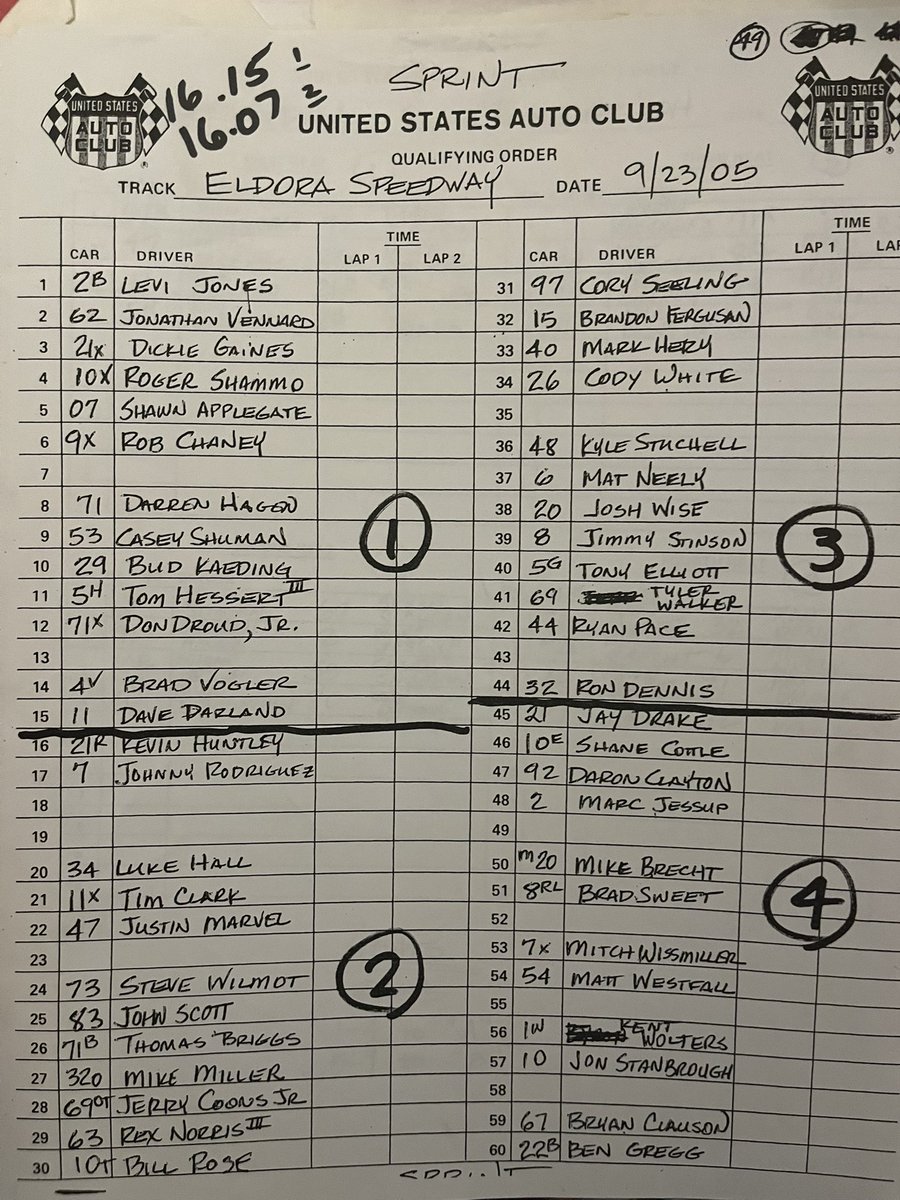 49
SPRINT
16.15 1
16.07 2
UNITED STATES AUTO CLUB
UNITED STATES AUTO CLUB
UNITED STATES AUTO CLUB
QUALIFYING ORDER
TRACK ELDORA SPEEDWAY DATE 9/23/05
TIME TIME
CAR DRIVER LAP 1 LAP 2 CAR DRIVER LAP 1
1 2B LEVI JONES
2 62 JONATHAN VENNARD
3 21X DICKIE GAINES
4 10X ROGER SHAMMO
5 07 SHAWN APPLEGATE
6 9X ROB CHANEY
7
8 71 DARREN HAGEN
9 53 CASEY SHUMAN
10 29 BUD KAEDING
11 5H TOM HESSERT III
12 71X DON DROUD, JR.
13
14 4V BRAD VOGLER
15 11 DAVE DARLAND
1
16 21R KEVIN HUNTLEY
17 7 JOHNNY RODRIGUEZ
18
19
20 34 LUKE HALL
21 11X TIM CLARK
22 47 JUSTIN MARVEL
23
24 73 STEVE WILMOT
25 83 JOHN SCOTT
26 71B THOMAS BRIGGS
27 320 MIKE MILLER
28 69OT JERRY COONS JR
29 63 REX NORRIS III
30 10T BILL ROSE
2
31 97 CORY SEELING
32 15 BRANDON FERGUSAN
33 40 MARK HERY
34 26 CODY WHITE
35
36 48 KYLE STUCHELL
37 6 MAT NEELY
38 20 JOSH WISE
39 8 JIMMY STINSON
40 5G TONY ELLIOTT
41 69 TYLER WALKER
42 44 RYAN PACE
43
44 32 RON DENNIS
3
45 21 JAY DRAKE
46 10E SHANE COTTLE
47 92 DARON CLAYTON
48 2 MARC JESSUP
49
50 M20 MIKE BRECHT
51 8RL BRAD SWEET
52
53 7X MITCH WISSMILLER
54 54 MATT WESTFALL
55
56 1W KENT WOLTERS
57 10 JON STANBROUGH
58
59 67 BRYAN CLAUSON
60 22B BEN GREGG
4